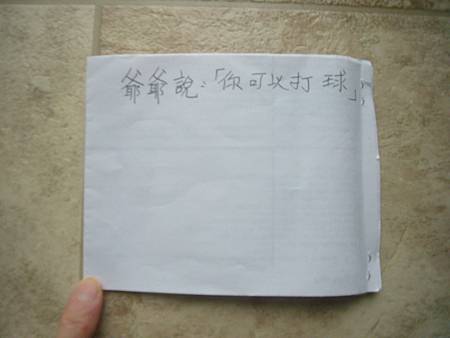 爺爺說:「你可以打球」